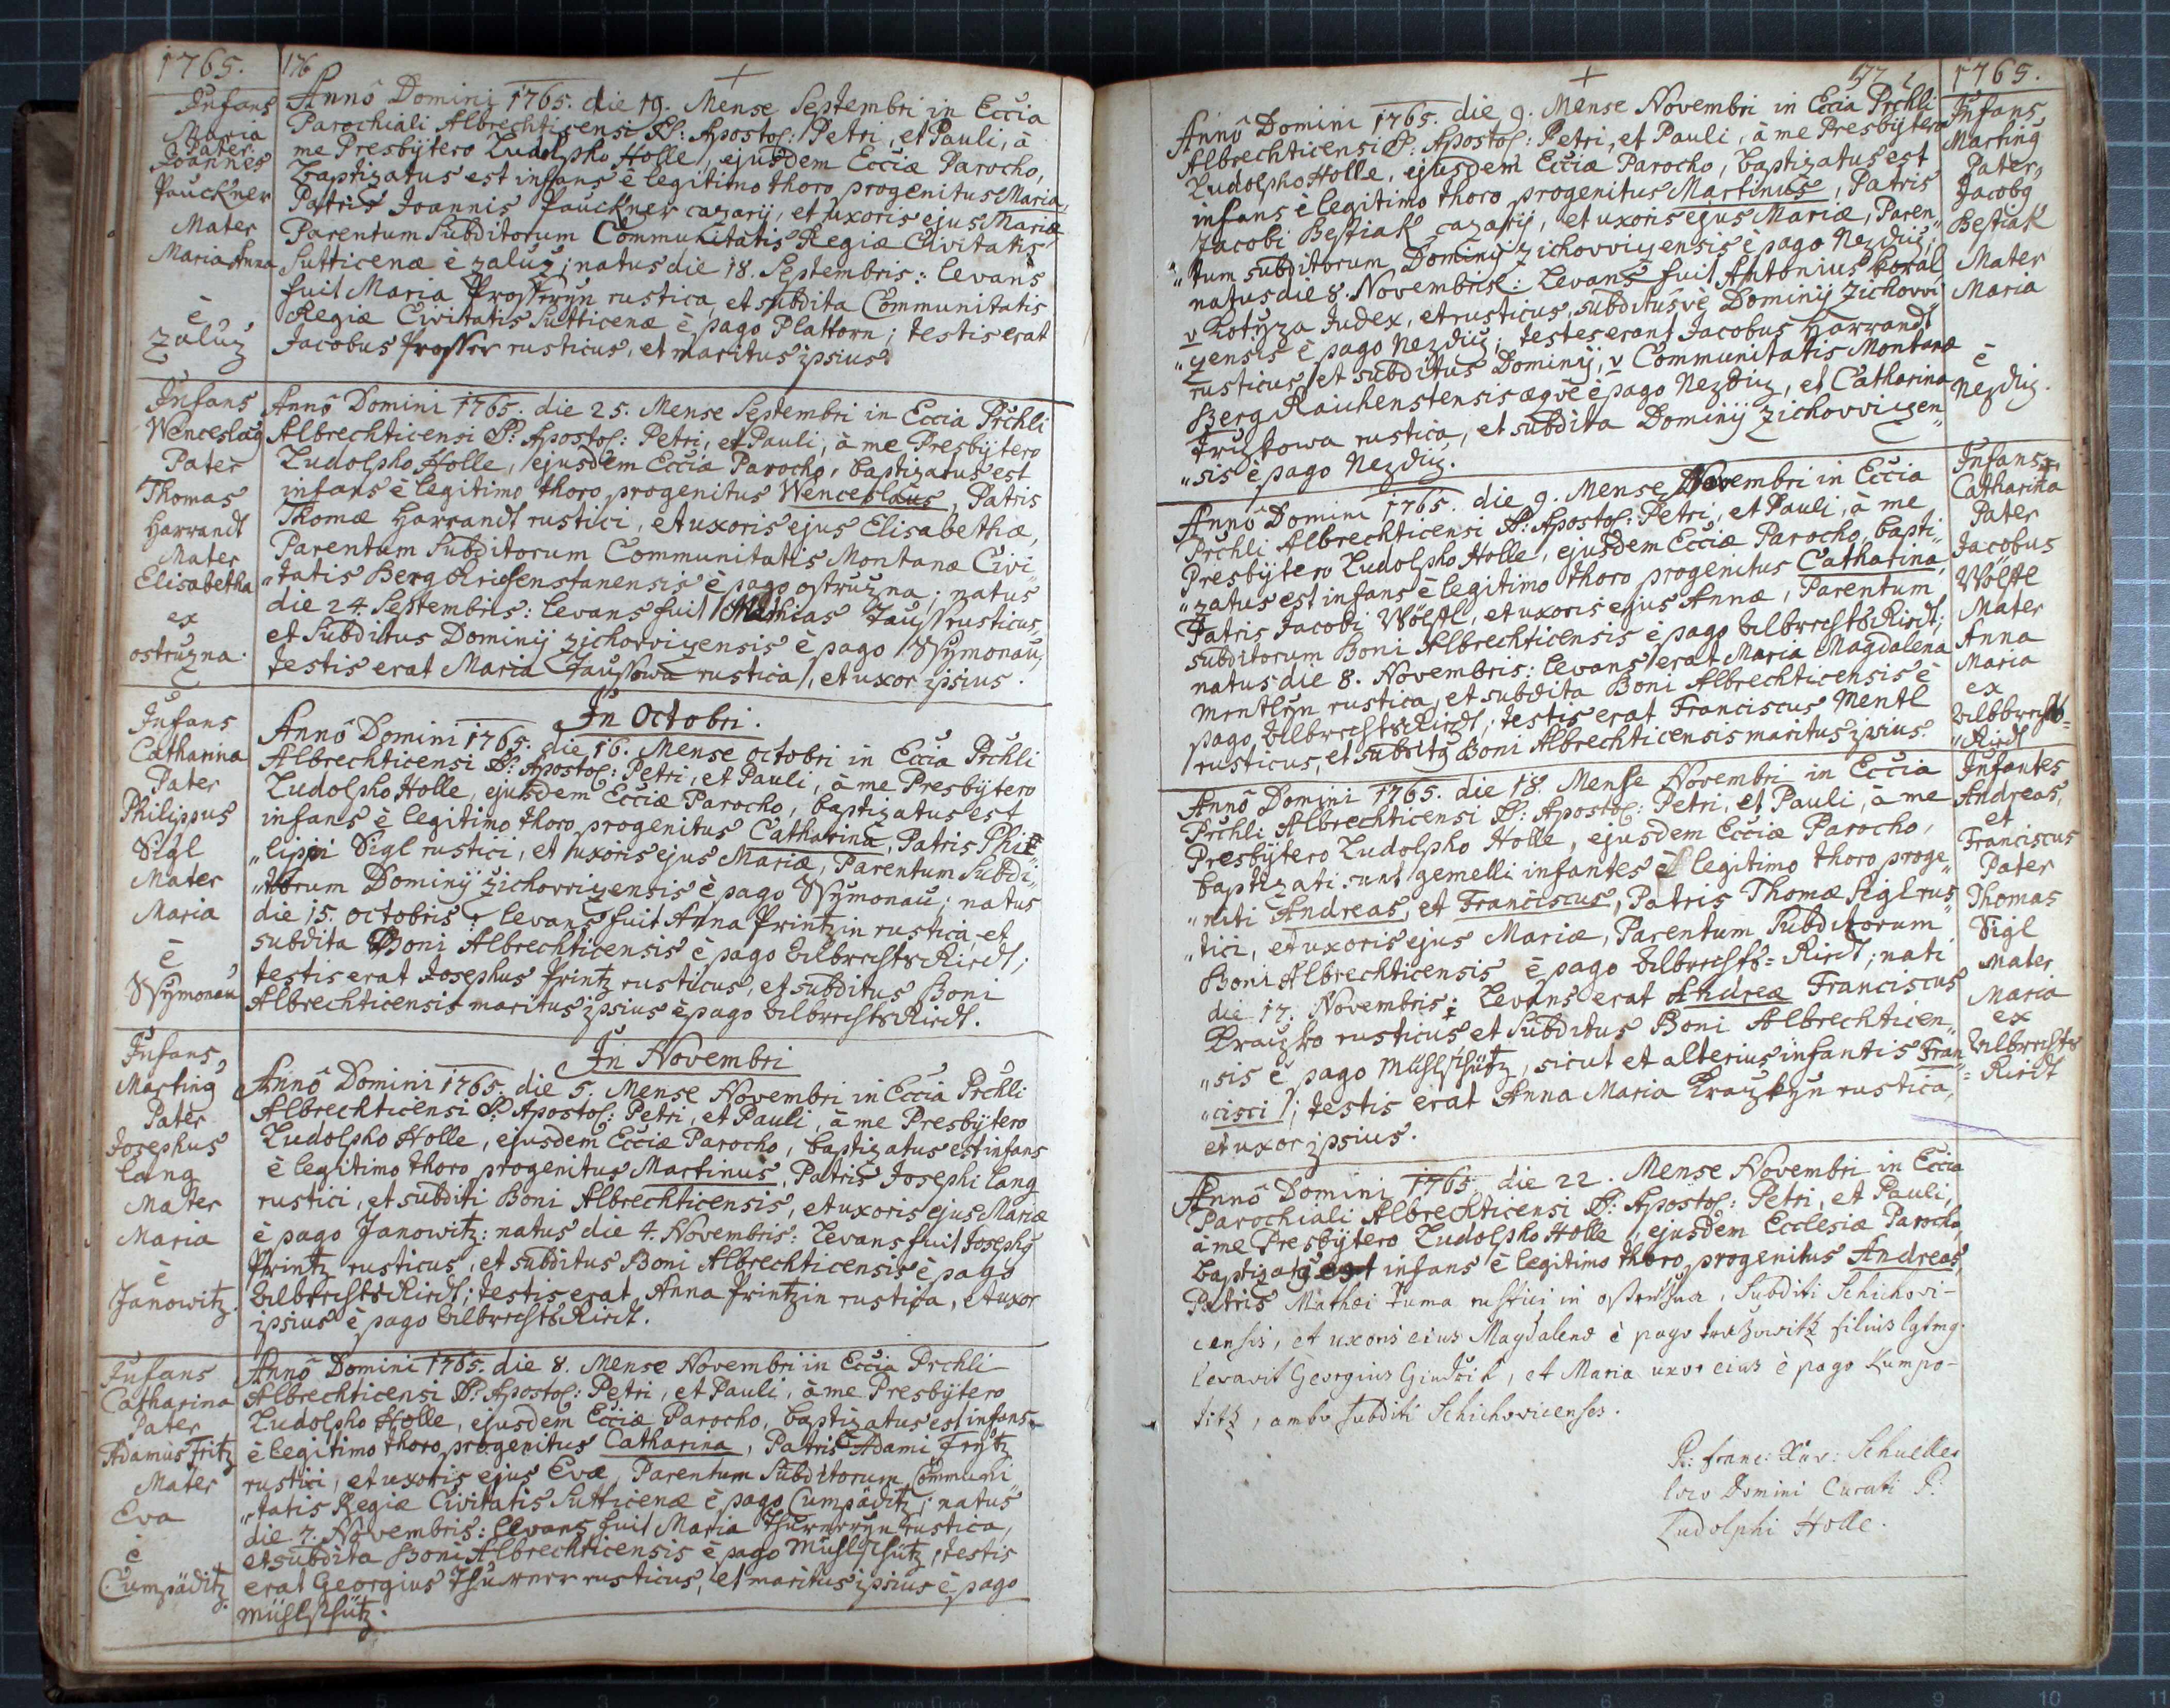 1765.
176
+
Infans
Maria
Pater
Joannes
Pauckner
Mater
Maria Anna
è
Zaluz
Annô Domini 1765. die 19. Mense Septembri in Eccia
Parochiali Albrechticensi SS: Apostol: Petri, et Pauli, à
me Presbÿtero Ludolpho Holle, ejusdem Ecciæ Parocho,
baptizatus est infans è legitimo thoro progenitus Maria,
Patris Joannis Pauckner cazarij, et uxoris ejus Mariæ
Parentum Subditorum Communitatis Regiæ Civitatis
Sutticenæ è zaluz; natus die 18. Septembris: levans
fuit Maria Prosserÿn rustica, et subdita Communitatis
Regiæ Civitatis Sutticenæ è pago Plattorn; testis erat
Jacobus Prosser rusticus, et maritus ipsius.
Infans
Wenceslaus
Pater
Thomas
Harrandt
Mater
Elisabetha
ex
ostruzna.
Annô Domini 1765. die 25. Mense Septembri in Eccia Prchli
Albrechticensi SS: Apostol: Petri, et Pauli, à me Presbÿtero
Ludolpho Holle, ejusdem Ecciæ Parocho, baptizatus est
infans è legitimo thoro progenitus Wenceslaus, Patris
Thomæ Harrandt rustici, et uxoris ejus Elisabethæ,
Parentum Subditorum Communitatis Montanæ Civi„
„tatis Berg Reichenstanensis è pago ostruzna; natus
die 24. Septembris: levans fuit Mathias Tauss rusticus,
et Subditus Dominij zichovvizensis è pago Wymonau,
testis erat Maria Taussowa rustica, et uxor ipsius.
Infans
Catharina
Pater
Philippus
Sigl
Mater
Maria
è
Wymonau
In Octobri.
Annô Domini 1765. die 16. Mense octobri in Eccia Prchli
Albrechticensi SS: Apostol: Petri, et Pauli, à me Presbÿtero
Ludolpho Holle, ejusdem Ecciæ Parocho, baptizatus est
infans è legitimo thoro progenitus Catharina, Patris Phi„
„lippi Sigl rustici, et uxoris ejus Mariæ, Parentum Subdi„
„torum Dominij zichovvizensis è pago Wymonau; natus
die 15. octobris: levans fuit Anna Printzin rustica, et
subdita Boni Albrechticensis è pago Ulbrechts Riedt;
testis erat Josephus Printz rusticus, et subditus Boni
Albrechticensis maritus ipsius è pago Ulbrechts Riedt.
Infans
Martinus
Pater
Josephus
Lang
Mater
Maria
è
Janowitz.
In Novembri
Annô Domini 1765. die 5. Mense Novembri in Eccia Prchli
Albrechticensi SS: Apostol: Petri, et Pauli, à me Presbÿtero
Ludolpho Holle, ejusdem Ecciæ Parocho, baptizatus est infans
è legitimo thoro progenitus Martinus, Patris Josephi Lang
rustici, et subditi Boni Albrechticensis, et uxoris ejus Mariæ
è pago Janowitz: natus die 4. Novembris: Levans fuit Josephus
Printz rusticus, et subditus Boni Albrechticensis è pago
Ulbrechts Riedt; testis erat Anna Printzin rustica, et uxor
ipsius è pago Ulbrechts Riedt.
Infans
Catharina
Pater
Adamus Fritz
Mater
Eva
è
Cumpäditz.
Annô Domini 1765. die 8. Mense Novembri in Eccia Prchli
Albrechticensi SS: Apostol: Petri, et Pauli, à me Presbÿtero
Ludolpho Holle, ejusdem Ecciæ Parocho, baptizatus est infans
è legitimo thoro progenitus Catharina, Patris Adami Frÿtz
rustici, et uxoris ejus Evæ, Parentum Subditorum Communi„
„tatis Regiæ Civitatis Sutticenæ è pago Cumpäditz; natus
die 7. Novembris: levans fuit Maria Thurnerÿn rustica,
et subdita Boni Albrechticensis è pago Mühlschütz, testis
erat Georgius Thurner rusticus, et maritus ipsius è pago
Mühlschütz.
+
177
1765.
Annô Domini 1765. die 9. Mense Novembri in Eccia Prchli
Albrechticensi SS: Apostol: Petri, et Pauli, à me Presbÿtero
Ludolpho Holle, ejusdem Ecciæ Parocho, baptizatus est
infans è legitimo thoro progenitus Martinus, Patris
Jacobi Bestiak cazarij, et uxoris ejus Mariæ, Paren„
„tum subditorum Dominij zichovvizensis è pago Nezdiz;
natus die 8. Novembris: Levans fuit Antonius Koral
v Kotÿza Judex, et rusticus, subditusvè Dominij Zichovvi
„zensis è pago Nezdiz; testes erant Jacobus Harrandt
rusticus, et subditus Dominij, v Communitatis Montanæ
Berg Raichenstensis æqvè è pago Nezdiz, et Catharina
Triztowa rustica, et subdita Dominij zichovvizen„
„sis è pago Nezdiz.
Infans
Martinus
Pater
Jacobus
Bestiak
Mater
Maria
è
Nezdiz.
Annô Domini 1765. die 9. Mense Novembri in Eccia
Prchli Albrechticensi SS: Apostol: Petri, et Pauli, à me
Presbÿtero Ludolpho Holle, ejusdem Ecciæ Parocho, bapti„
„zatus est infans è legitimo thoro progenitus Catharina,
Patris Jacobi Wölfl, et uxoris ejus Annæ, Parentum
subditorum Boni Albrechticensis è pago Ulbrechts Riedt;
natus die 8. Novembris: levans erat Maria Magdalena
Mentlÿn rustica, et subdita Boni Albrechticensis è
pago Ulbrechts Riedt; testis erat Franciscus Mentl
rusticus, et subditus Boni Albrechticensis maritus ipsius.
Infans
Catharina
Pater
Jacobus
Wölfl
Mater
Anna
Maria
ex
Ulbbrechts=
„Riedt
Annô Domini 1765. die 18. Mense Novembri in Eccia
Prchli Albrechticensi SS: Apostol: Petri, et Pauli, à me
Presbÿtero Ludolpho Holle, ejusdem Ecciæ Parocho,
baptizati sunt gemelli infantes è legitimo thoro proge„
„niti Andreas, et Franciscus, Patris Thomæ Sigl rus„
„tici, et uxoris ejus Mariæ, Parentum Subditorum
Boni Albrechticensis è pago Ulbrechts=Riedt; nati
die 17. Novembris: Levans erat Andreæ Franciscus
Krazko rusticus, et Subditus Boni Albrechticen„
„sis è pago Mühlschütz, sicut et alterius infantis Fran„
„cisci; testis erat Anna Maria Krazkÿn rustica,
et uxor ipsius.
Infantes
Andreas,
et
Franciscus
Pater
Thomas
Sigl
Mater
Maria
ex
Ulbrechts
=Riedt
Annô Domini 1765. die 22. Mense Novembri in Eccia
Parochiali Albrechticensi SS: Apostol: Petri, et Pauli,
à me Presbÿtero Ludolpho Holle, ejusdem Ecclesiæ Parocho
baptizatus est infans è legitimo thoro progenitus Andreas,
Patris Mathæi Tuma rustici in ostruzna, Subditi Schichovi-
censis, et uxoris eius Magdalenæ è pago filius
levavit Georgius, et Maria uxor eius è pago Kumpo-
titz, ambo subditi Schichovicenses.
P: Franc: Xav: Schueller
loco Domini Curati P:
Ludolphi Holle.